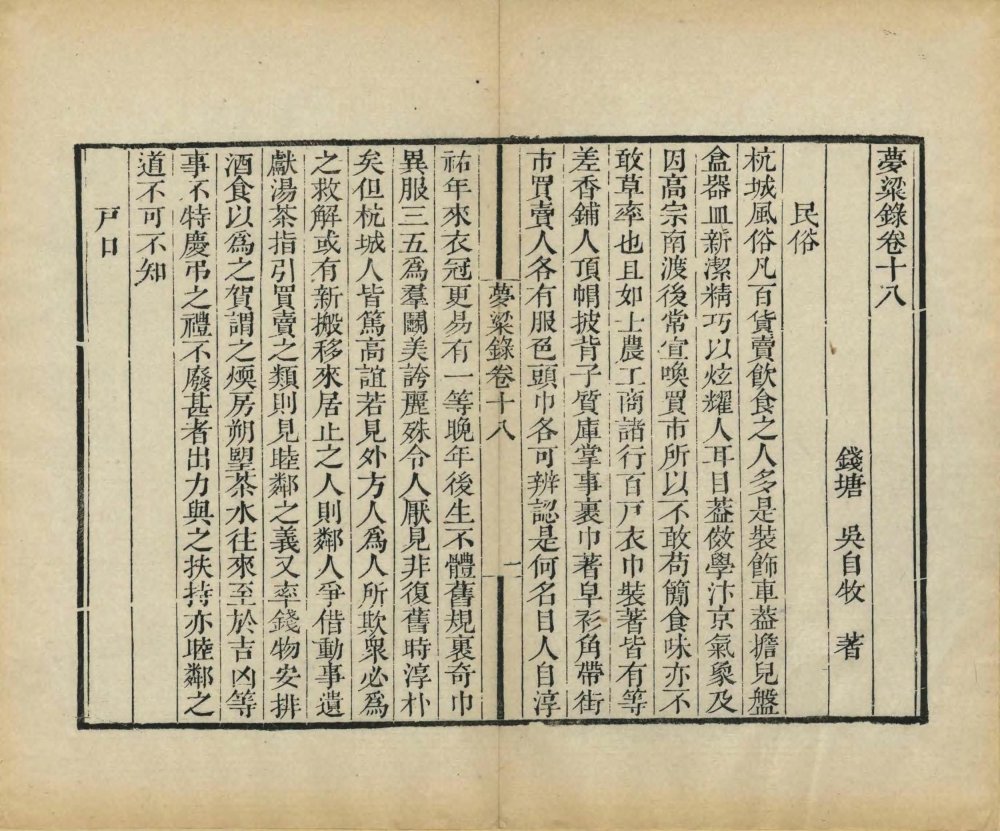 夢粱錄卷十八
錢塘 吳自牧 著
民俗
杭城風俗凡百貨賣飲食之人多是裝飾車蓋擔兒盤
盒器皿新潔精巧以炫耀人耳目葢倣學汴京氣象及
因高宗南渡後常宣喚買市所以不敢苟簡食味亦不
敢草率也且如士農工商諸行百戸衣巾裝著皆有等
差香鋪人頂帽披背子質庫掌事裹巾著皁衫角帶街
市買賣人各有服色頭巾各可辨認是何名目人自淳
夢粱錄卷十八 一
祐年來衣冠更易有一等晚年後生不體舊規裹奇巾
異服三五爲羣鬭美誇麗殊令人厭見非復舊時淳朴
矣但杭城人皆篤高誼若見外方人爲人所欺衆必爲
之救解或有新搬移來居止之人則鄰人爭借動事遺
獻湯茶指引買賣之類則見睦鄰之義又率錢物安排
酒食以爲之賀謂之煖房朔望茶水往來至於吉凶等
事不特慶弔之禮不廢甚者出力與之扶持亦睦鄰之
道不可不知
戸口